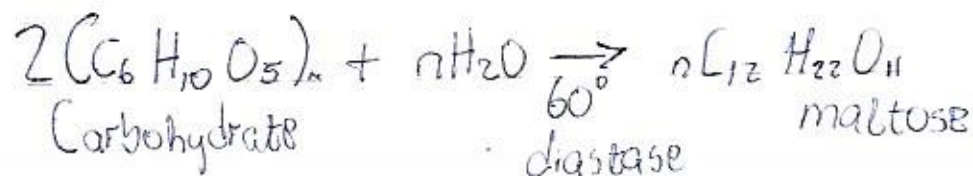 2(C₆H₁₀O₅)ₙ + nH₂O → nC₁₂H₂₂O₁₁
60°
Carbohydrate diastase maltose